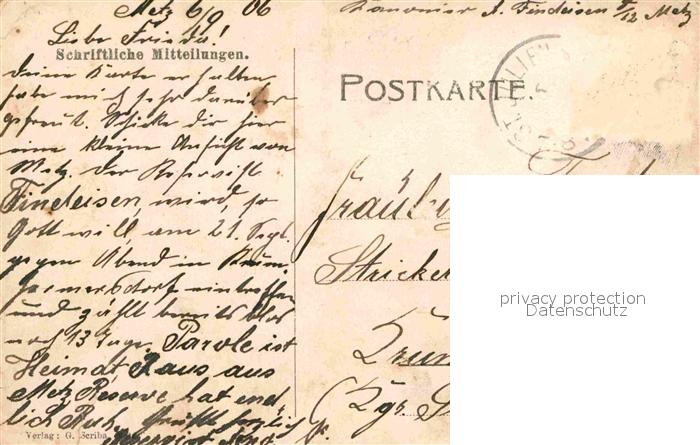 Metz 6/9 06
Liebe Frieda!
Schriftliche Mitteilungen.
deine Karte erhalten
habe mich sehr darüber
gefreut. Schicke dir hier
eine kleine Ansicht von
Metz. der Reservist
Findeisen, wird, so
Gott will, am 21. Sept.
gegen Abend in
eintreffen
und zählt bereits blos
noch 13 Tage. Parole ist
Heimat, Raus aus
Metz Reserve hat end
lich Ruh. Grüßt herzlich
Verlag: G. Scriba,
Kanonier A. Findeisen 8/12 Metz
POSTKARTE.
Fräul
Stricker
Kgr. S
privacy protection
Datenschutz